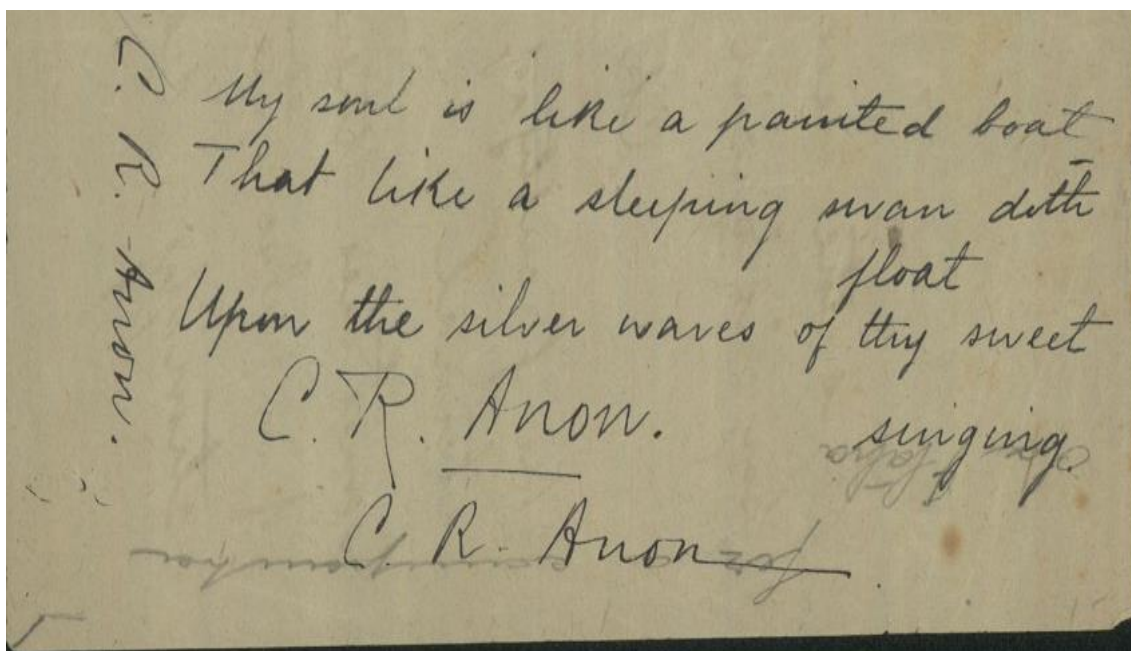 My soul is like a painted boat
That like a sleeping swan doth
float
Upon the silver waves of thy sweet
singing.
C. R. Anon.
C. R. Anon
C. R. Anon.